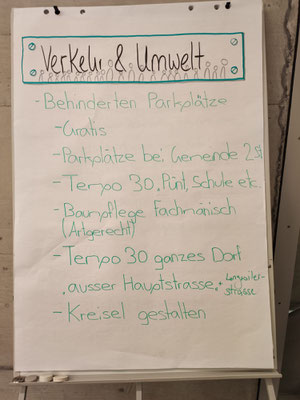 Verkehr & Umwelt
- Behinderten Parkplätze
- Gratis
- Parkplätze bei Gemeinde 2 st
- Tempo 30, Pünt, Schule etc.
- Baumpflege Fachmänisch
(Artgerecht)
- Tempo 30 ganzes Dorf
ausser Hauptstrasse
strasse
- Kreisel gestalten